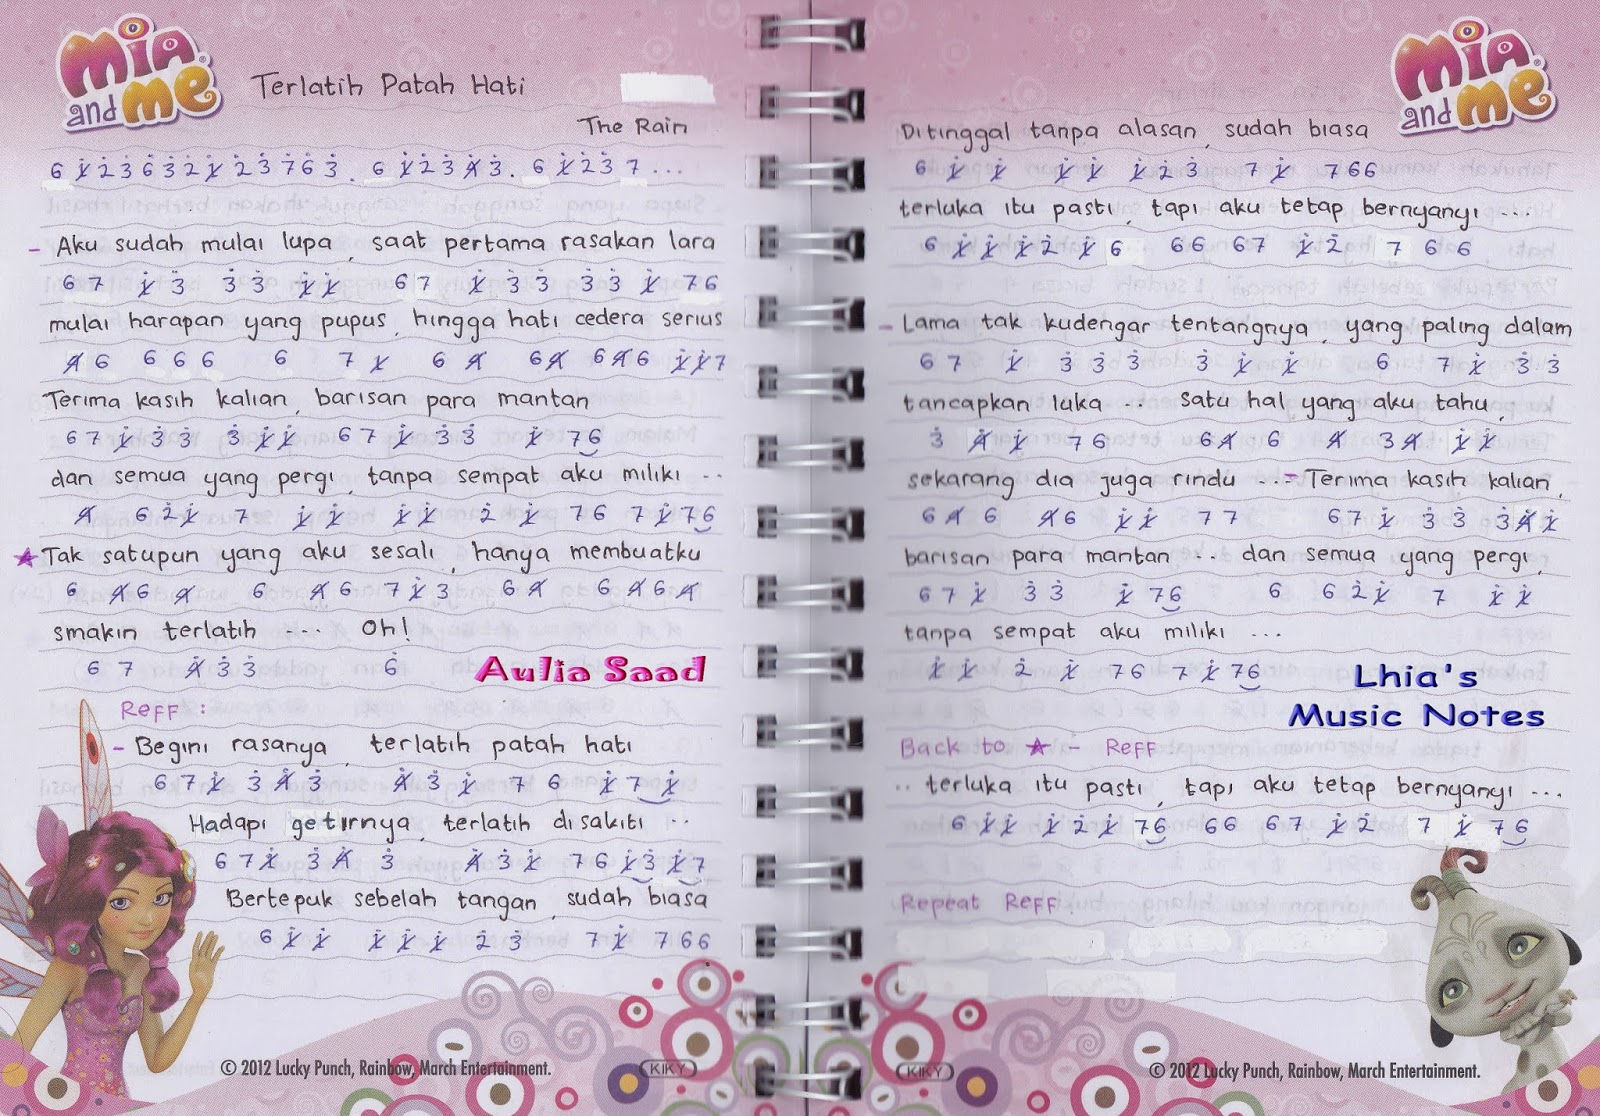 Mia and me
Terlatih Patah Hati
The Rain
6 1̸̇ 2̇ 3̇ 6̇ 3̇ 2̇ 1̸̇ 2̇ 3̇ 7 6 3̇ . 6 1̸̇ 2̇ 3̇ 4̸̇ 3̇ . 6 1̸̇ 2̇ 3̇ 7 ...
- Aku sudah mulai lupa, saat pertama rasakan lara
6 7 1̸̇ 3̇ 3̇ 3̇ 1̸̇ 1̸̇ 6 7 1̸̇ 3̇ 3̇ 3̇ 3̇ 1̸̇ 7 6
mulai harapan yang pupus, hingga hati cedera serius
4̸ 6 6 6 6 6 7 1̸̇ 6 4̸ 6 4̸ 6 4̸ 6 1̸̇ 1̸̇ 7
Terima kasih kalian, barisan para mantan
6 7 1̸̇ 3̇ 3̇ 3̇ 1̸̇ 1̸̇ 6 7 1̸̇ 3̇ 3̇ 1̸̇ 7 6
dan semua yang pergi, tanpa sempat aku miliki ..
4̸ 6 2̇ 1̸̇ 7 1̸̇ 1̸̇ 1̸̇ 1̸̇ 2̇ 1̸̇ 7 6 7 1̸̇ 7 6
★ Tak satupun yang aku sesali, hanya membuatku
6 4̸ 6 4̸ 6 4̸ 6 7 1̸̇ 3̇ 6 4̸ 6 4̸ 6 4̸
smakin terlatih .... Oh!
6 7 4̸̇ 3̇ 3̇ 6̇
Aulia Saad
Reff :
- Begini rasanya, terlatih patah hati
6 7 1̸̇ 3̇ 4̸̇ 3̇ 4̸̇ 3̇ 1̸̇ 7 6 1̸̇ 7 1̸̇
Hadapi getirnya, terlatih disakiti ..
6 7 1̸̇ 3̇ 4̸̇ 3̇ 4̸̇ 3̇ 1̸̇ 7 6 1̸̇ 3̇ 1̸̇ 7
Bertepuk sebelah tangan, sudah biasa
6 1̸̇ 1̸̇ 1̸̇ 1̸̇ 1̸̇ 2̇ 3̇ 7 1̸̇ 7 6 6
© 2012 Lucky Punch, Rainbow, March Entertainment.
KIKY
Mia and me
Ditinggal tanpa alasan, sudah biasa
6 1̸̇ 1̸̇ 1̸̇ 1̸̇ 1̸̇ 2̇ 3̇ 7 1̸̇ 7 6 6
terluka itu pasti, tapi aku tetap bernyanyi ....
6 1̸̇ 1̸̇ 1̸̇ 2̇ 1̸̇ 6 6 6 6 7 1̸̇ 2̇ 7 6 6
- Lama tak kudengar tentangnya, yang paling dalam
6 7 1̸̇ 3̇ 3̇ 3̇ 3̇ 1̸̇ 1̸̇ 6 7 1̸̇ 3̇ 3̇
tancapkan luka .. Satu hal yang aku tahu,
3̇ 4̸̇ 1̸̇ 7 6 6 4̸ 6 4̸ 3 4̸ 1̸̇ 1̸̇
sekarang dia juga rindu ... - Terima kasih kalian,
6 4̸ 6 4̸ 6 1̸̇ 1̸̇ 7 7 6 7 1̸̇ 3̇ 3̇ 3̇ 4̸̇ 1̸̇
barisan para mantan ... dan semua yang pergi,
6 7 1̸̇ 3̇ 3̇ 1̸̇ 7 6 6 6 2̇ 1̸̇ 7 1̸̇ 1̸̇
tanpa sempat aku miliki ...
1̸̇ 1̸̇ 2̇ 1̸̇ 7 6 7 1̸̇ 7 6
Lhia's
Music Notes
Back to ★ - Reff
.. terluka itu pasti, tapi aku tetap bernyanyi ...
6 1̸̇ 1̸̇ 1̸̇ 2̇ 1̸̇ 7 6 6 6 6 7 1̸̇ 2̇ 7 1̸̇ 7 6
Repeat Reff.
KIKY
© 2012 Lucky Punch, Rainbow, March Entertainment.